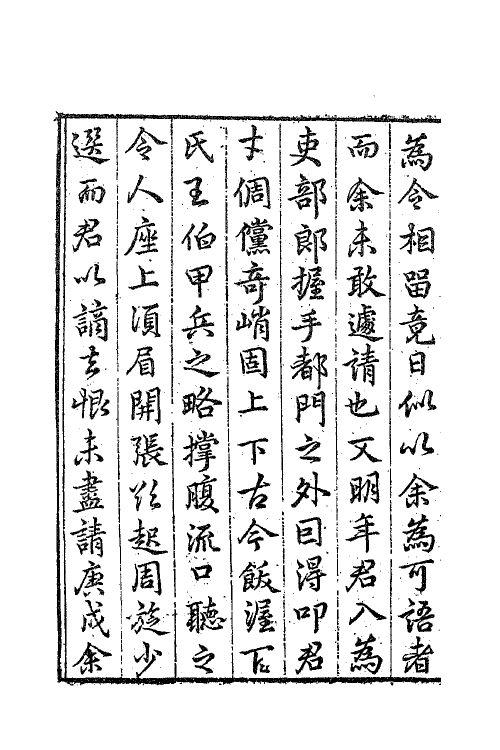 為令相留竟日似以余為可語者
而余未敢遽請也又明年君入為
吏部郎握手都門之外因得叩君
才倜儻奇峭固上下古今飯渥
氏王伯甲兵之略撑腹流口聽之
令人座上須眉開張欲起周旋少
選而君以謫去恨未盡請庚戌余